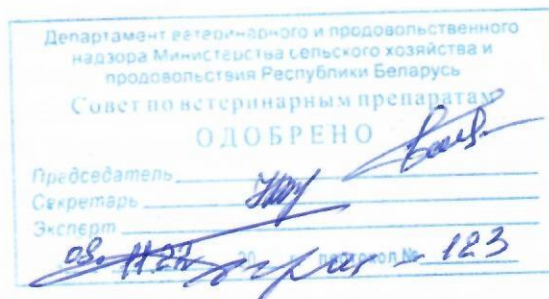 Департамент ветеринарного и продовольственного
надзора Министерства сельского хозяйства и
продовольствия Республики Беларусь
Совет по ветеринарным препаратам
ОДОБРЕНО
Председатель
Секретарь
Эксперт
протокол № 123